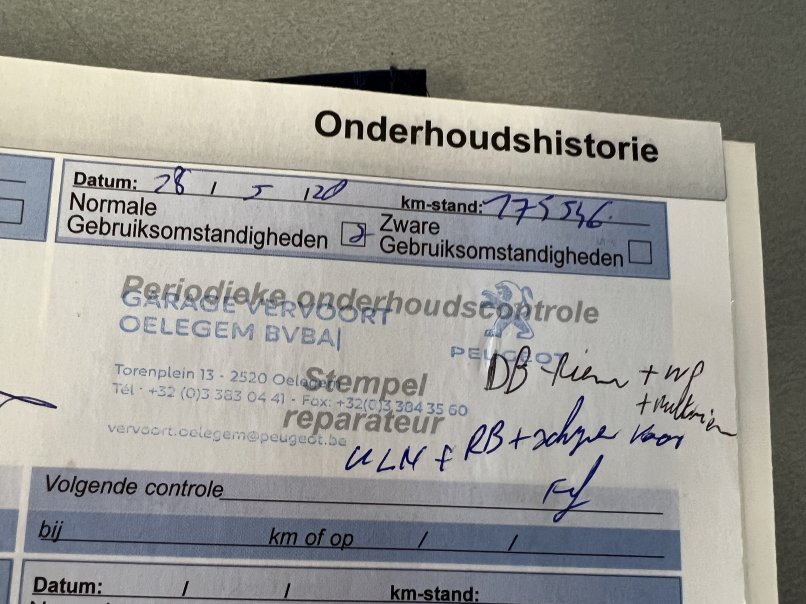 Onderhoudshistorie
Datum: 28 / 5 / 20 km-stand: 175546
Normale
Gebruiksomstandigheden
Zware
Gebruiksomstandigheden
Periodieke onderhoudscontrole
GARAGE VERVOORT
OELEGEM BVBA
PEUGEOT
Torenplein 13 - 2520 Oelegem
Tél. +32 (0)3 383 04 41 - Fax: +32(0)3 384 35 60
vervoort.oelegem@peugeot.be
Stempel
reparateur
DB-riem + wp
+
+ RB +
Volgende controle
bij km of op / /
Datum: / / km-stand: